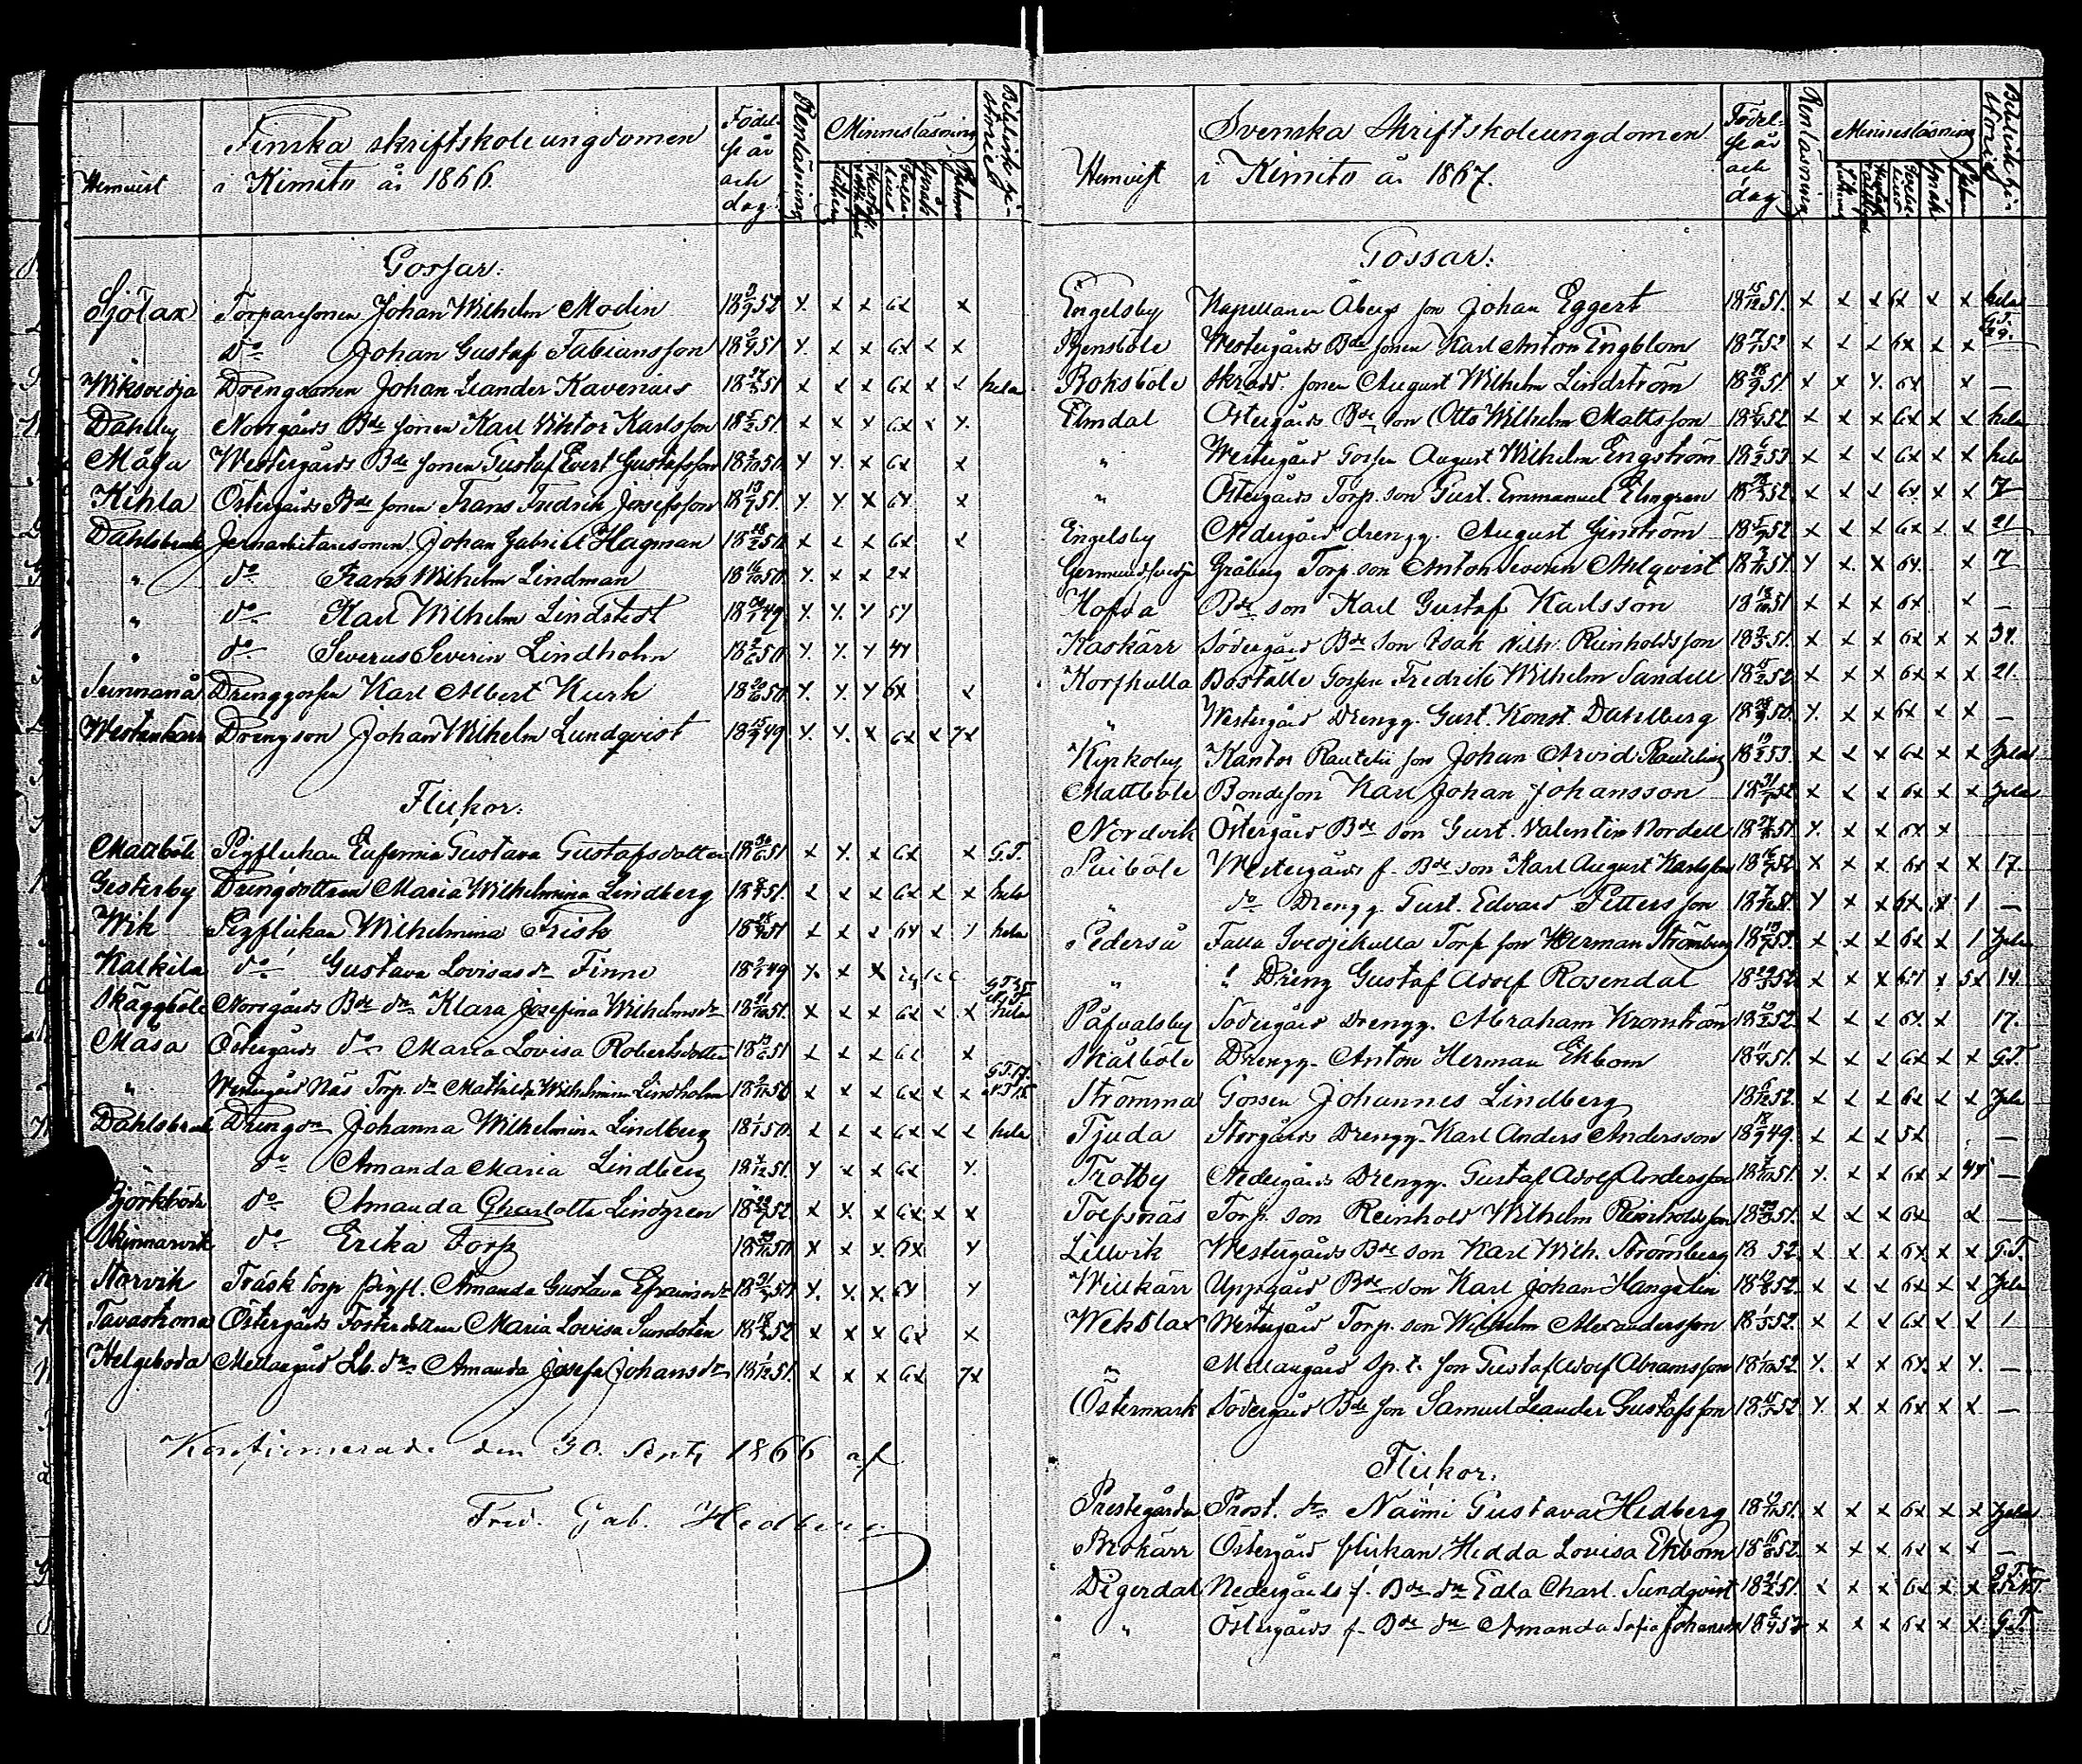 Finska skriftskoleungdomen
i Kimito år 1866.
Hemvist
Födel-
se år
och
dag.
Renläsning
Minnesläsning
Gossar:
Sjölax Torparesonen Johan Wilhelm Modin 18 52 x x x 6x x
do Johan Gustaf Fabiansson 18 51 x x x 6x x x
Wiksvedja Drengsonen Johan Leander Kavenius 18 51 x x x 6x x x hela
Dahlby Norrgårds Bde sonen Karl Viktor Karlsson 18 51 x x x 6x x x
Måsa Westergårds Bde sonen Gustaf Evert Gustafsson 18 50 x x x 6x x
Kihla Östergårds Bde sonen Frans Fredrik Josefsson 18 51 x x x 6x x
Dahlsbruk Jernarbetaresonen Johan Gabriel Hagman 18 50 x x x 6x x
" do Frans Wilhelm Lindman 18 50 x x x 2x
" do Karl Wilhelm Lindstedt 18 49 x x x 5x
" do Severus Severin Lindholm 18 50 x x x 4x
Sunnanå Drenggossen Karl Albert Kurk 18 50 x x x 6x x
Westankärr Drengson Johan Wilhelm Lundqvist 18 49 x x x 6x x 7x
Flickor:
Mattböle Pigflickan Eufemia Gustava Gustafsdotter 18 51 x x x 6x x G.T.
Gesterby Drengdottren Maria Wilhelmina Lindberg 18 51 x x x 6x x x hela
Wik Pigflickan Wilhelmina Frisk 18 51 x x x 6x x x hela
Kalkila do Gustava Lovisas dr Finne 18 49 x x x
Skäggböle Norrgårds Bde dr Klara Josefina Wilhelmsdr 18 51 x x x 6x x x hela
Måsa Östergårds do Maria Lovisa Robertsdotter 18 51 x x x 6x x
" Westergård Näs Torp. dr Mathilda Wilhelmina Lindholm 18 50 x x x 6x x x
Dahlsbruk Drengdr Johanna Wilhelmina Lindberg 18 50 x x x 6x x x hela
do Amanda Maria Lindberg 18 51 x x x 6x x
Björkboda do Amanda Charlotta Lindgren 18 52 x x x 6x x x
Skinnarvik do Erika Torp 18 50 x x x 6x x
Storvik Träsk torp pigfl. Amanda Gustava Efraimsdr 18 50 x x x 6x x
Tavastkoma Östergårds Fosterdottren Maria Lovisa Sundsten 18 52 x x x 6x x
Helgeboda Mellangård Lb. dr Amanda Josefa Johansdr 18 51 x x x 6x 7x
Konfirmerade den 30. Sept. 1866 af
Fred. Gab. Hedberg
Svenska Skriftskoleungdomen
i Kimito år 1867.
Hemvist
Födel-
se år
och
dag
Renläsning
Minnesläsning
Gossar:
Engelsby Kapellanen Åbergs son Johan Eggert 18 51. x x x 6x x x hela
Westergårds Bde sonen Karl Anton Engblom 18 52 x x x 6x x x
Boksböle Skradd. sonen August Wilhelm Lindström 18 51 x x x 6x x —
Elmdal Östergårds Bde son Otto Wilhelm Mattsson 18 52 x x x 6x x x hela
" Westergård Gossen August Wilhelm Engström 18 53 x x x 6x x x hela
" Östergårds Torp. son Gust. Emmanuel Elmgren 18 52 x x x 6x x x 7
Engelsby Nedergård drengg. August Ginström 18 52 x x x 6x x x 21
Germundsvedja Gråberg Torp. son Anton Severin Ahlqvist 18 51 x x x 6x x 7
Hofva Bde son Karl Gustaf Karlsson 18 51 x x x 6x x —
Kaskärr Södergård Bde son Isak Wilh. Reinholdsson 18 51 x x x 6x x x 34.
Korskulla Boställe Gossen Fredrik Wilhelm Sandell 18 52 x x x 6x x x 21.
" Westergård Drengg. Gust. Konst. Dahlberg 18 50 x x x 6x x x —
Kyrkoby Kantor Rautelii son Johan Arvid Rautelius 18 53 x x x 6x x x hela
Mattböle Bondeson Karl Johan Johansson 18 52 x x x 6x x x hela
Nordvik Östergård Bde son Gust. Valentin Nordell 18 51 x x x 6x x
Puiböle Westergårds f. Bde son Karl August Karlsson 18 52 x x x 6x x x 17.
" do Drengg. Gust. Edvard Pettersson 18 51 x x x 6x x —
Pederså Falla Svedjekulla Torp son Herman Strömberg 18 53 x x x 6x x hela
" Dreng Gustaf Adolf Rosendal 18 52 x x x 6x x 5x 14.
Påfvalsby Södergård Drengg. Abraham Kronström 18 52 x x x 6x x 17.
Skålböle Drengg. Anton Herman Ekbom 18 51 x x x 6x x x G.T.
Strömma Gossen Johannes Lindberg 18 52 x x x 6x x x hela
Tjuda Storgårds Drengg. Karl Anders Andersson 18 49. x x x 5x —
Trotby Nedergårds Drengg. Gustaf Adolf Andersson 18 51. x x x 6x x 4x —
Tolfsnäs Torp. son Reinhold Wilhelm Reinholdsson 18 51. x x x 6x x —
Lillvik Westergårds Bde son Karl Wilh. Strömberg 18 52. x x x 6x x x G.T.
Willkärr Uppgård Bde son Karl Johan Hangelin 18 52. x x x 6x x x hela
Wekslax Westergård Torp. son Wilhelm Alexandersson 18 52. x x x 6x x x 1
" Mellangård Sp. t. son Gustaf Adolf Abramsson 18 52. x x x 6x x x —
Östermark Södergård Bde son Samuel Leander Gustafsson 18 52 x x x 6x x x —
Flickor.
Prestegården Prost. dr Naëmi Gustava Hedberg 18 51. x x x 6x x x hela
Brokärr Östergård flickan Hedda Lovisa Ekbom 18 52. x x x 6x x x —
Digerdal Nedergårds f. Bde dr Edla Charl. Sundqvist 18 51. x x x 6x x x
" Östergårds f. Bde dr Amanda Sofia Johansdr 18 52 x x x 6x x x G.T.